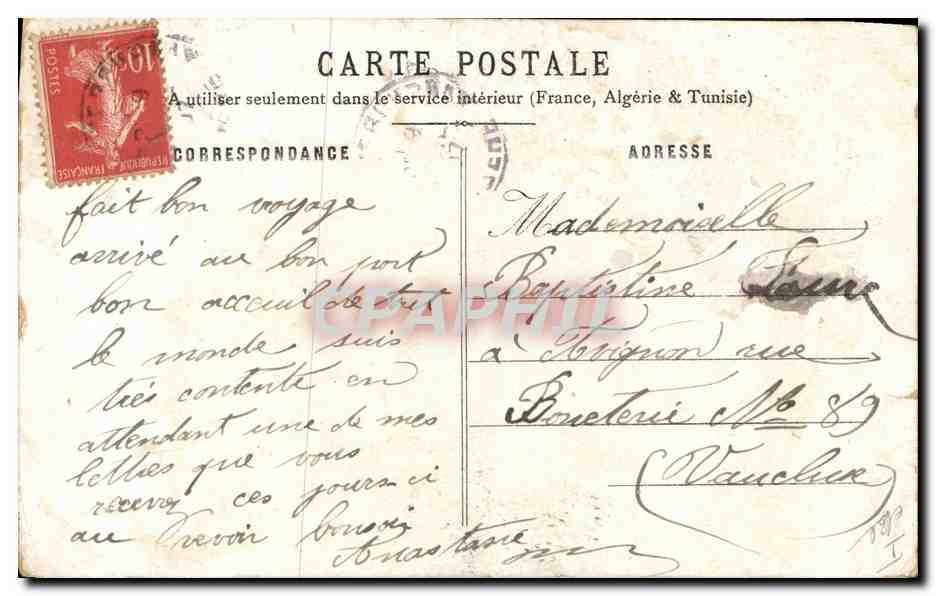 CARTE POSTALE
A utiliser seulement dans le service intérieur (France, Algérie & Tunisie)
CORRESPONDANCE
fait bon voyage
arrivé au bon port
bon acceuil de tout
le monde suis
très contente en
attendant une de mes
lettres que vous
recevez ces jours-ci
au revoir bonsoir
Anastasie
ADRESSE
Mademoiselle
Baptistine Faure
à Avignon rue
Boneterie No 89
(Vaucluse)
10
POSTES
REPUBLIQUE FRANÇAISE
CPAPHIL